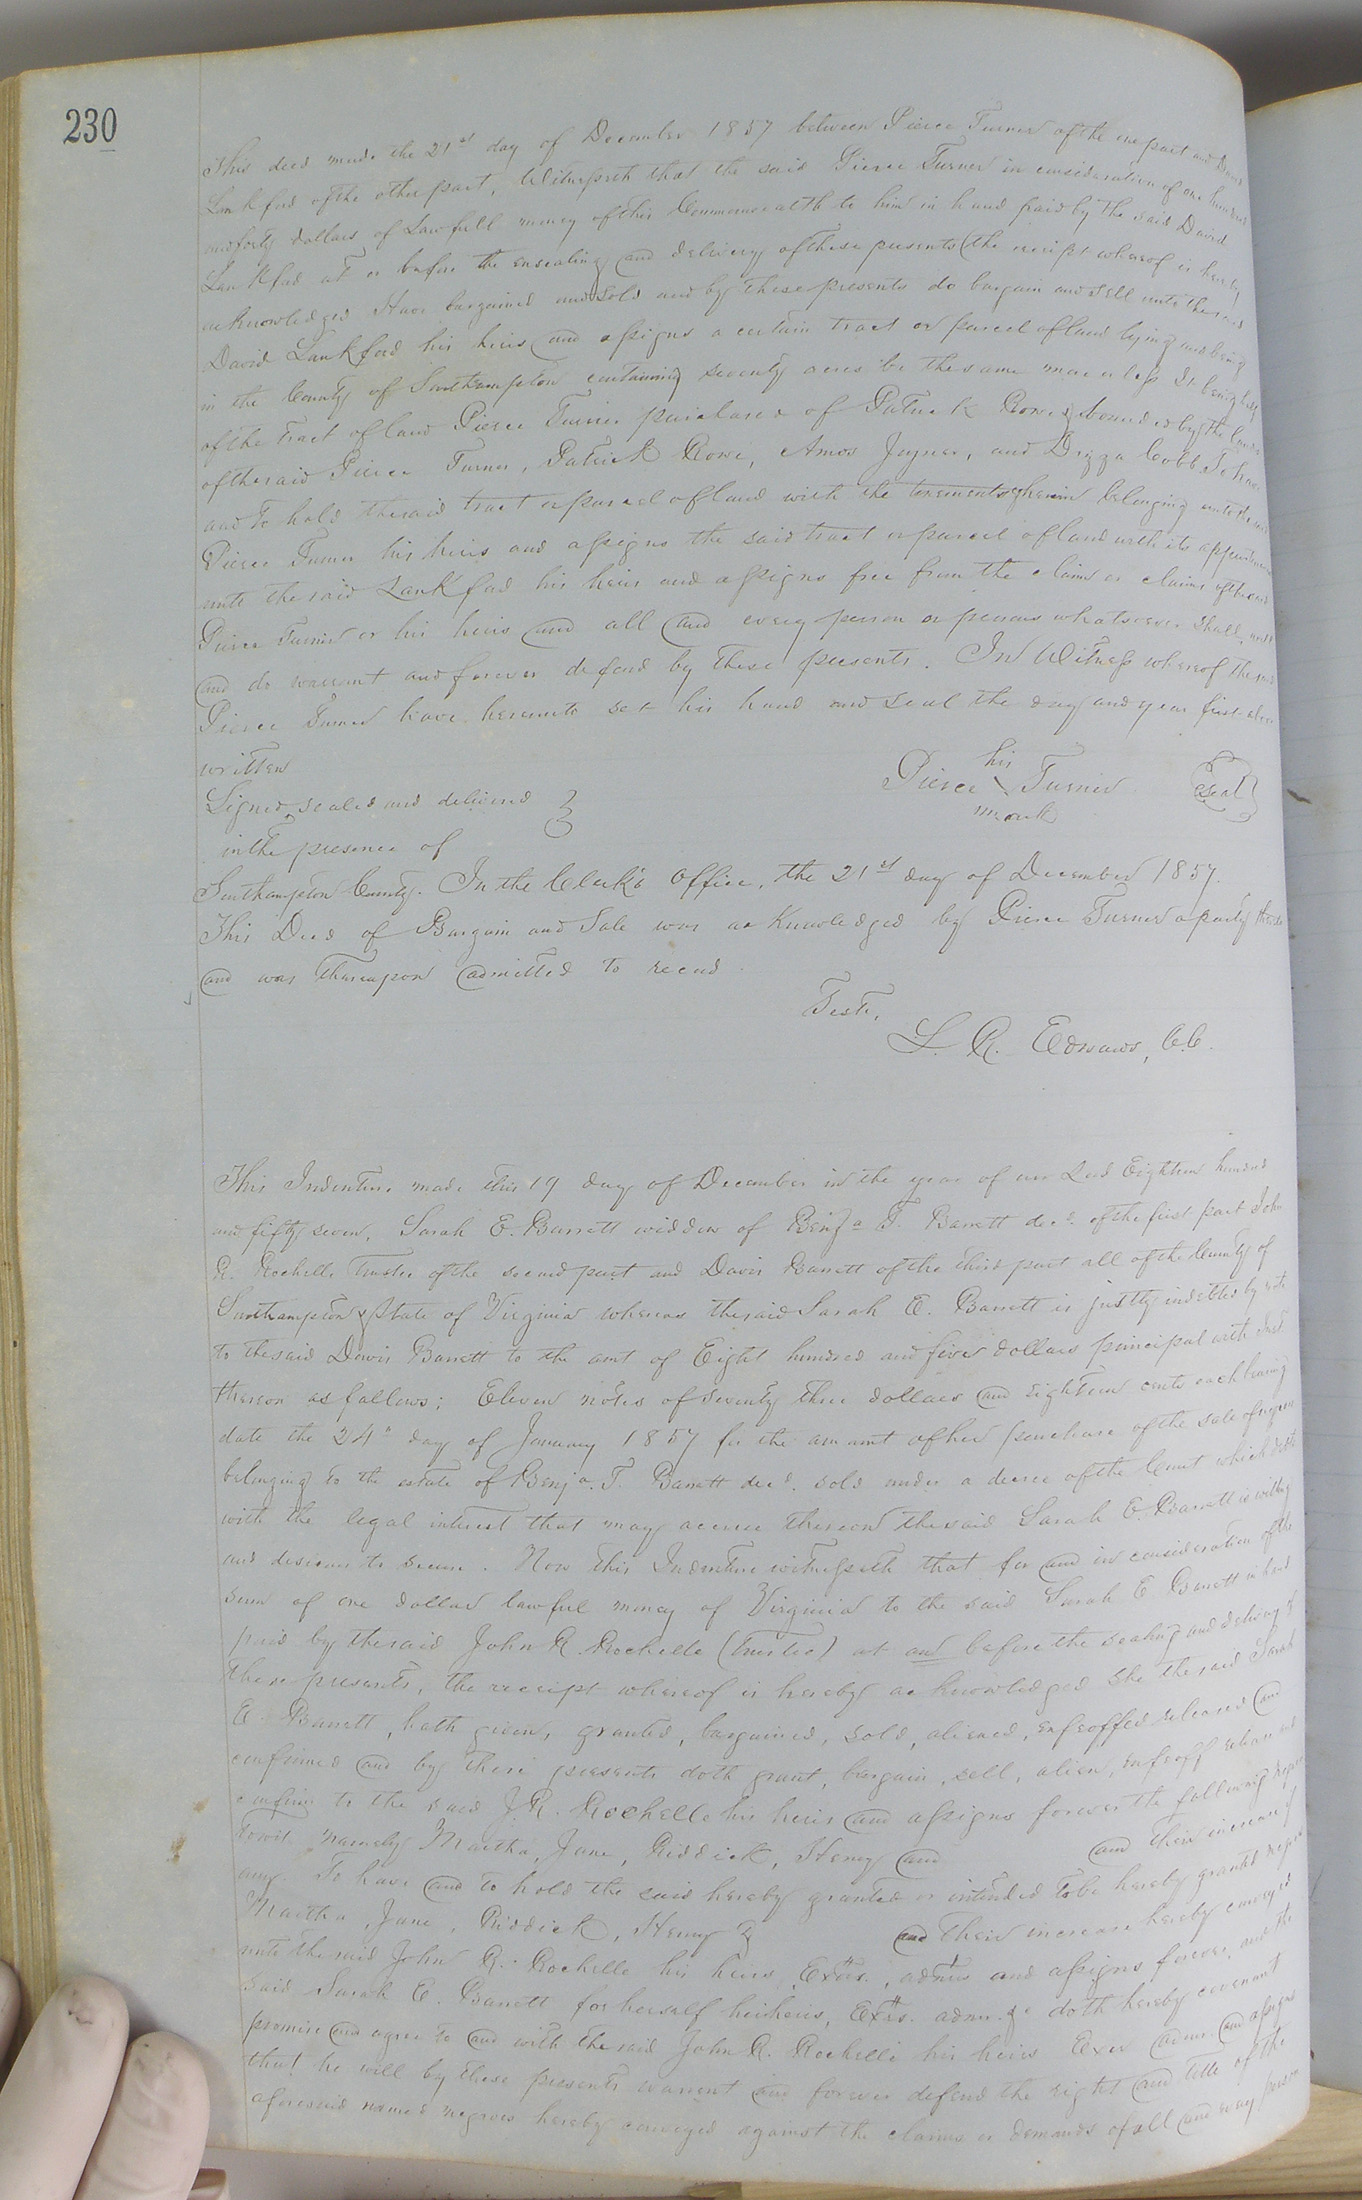 230
This deed made the 21st day of December 1857 between Pierce Turner of the one part and David
Lankford of the other part, Witnesseth that the said Pierce Turner in consideration of one hundred
and forty dollars of Lawfull money of this Commonwealth to him in hand paid by the said David
Lankford at or before the ensealing and delivery of these presents (the receipt whereof is hereby
acknowledged Have bargained and sold and by these presents do bargain and sell unto the said
David Lankford his heirs and assigns a certain tract or parcel of land lying and being
in the County of Southampton containing seventy acres be the same more or less It being
of the tract of land Pierce Turner purchased of Patrick Rowe & bounded by the lands
of the said Pierce Turner, Patrick Rowe, Amos Joyner, and Drizza Cobb To have
and to hold the said tract or parcel of land with the tenements therein belonging unto the said
Pierce Turner his heirs and assigns the said tract or parcel of land with its appurtenances
unto the said Lankford his heirs and assigns free from the claim or claims of the said
Pierce Turner or his heirs and all and every person or persons whatsoever shall,
and do warrant and forever defend by these presents. In Witness whereof the said
Pierce Turner have hereunto set his hand and seal the day and year first above
written
Pierce his Turner Seal
mark
Signed, sealed and delivered
in the presence of
Southampton County. In the Clerk's Office, the 21st day of December 1857.
This Deed of Bargain and Sale was acknowledged by Pierce Turner a party thereto
and was thereupon admitted to record.
Teste,
L. R. Edwards, C.C.
This Indenture made this 19 day of December in the year of our Lord Eighteen hundred
and fifty seven, Sarah E. Barrett widdow of Benja T. Barrett decd. of the first part John
R. Rochelle Trustee of the second part and Davis Barrett of the third part all of the County of
Southampton & State of Virginia whereas the said Sarah E. Barrett is justly indetted by note
to the said Davis Barrett to the amt of Eight hundred and five dollars principal with Int
thereon as follows; Eleven notes of seventy three dollars and eighteen cents each bearing
date the 24th day of January 1857 for the amount of her purchase of the sale of negroes
belonging to the estate of Benja. T. Barrett decd. sold under a decree of the Court which debt
with the legal interest that may accrue thereon the said Sarah E. Barrett is willing
and desirous to secure. Now this Indenture witnesseth that for and in consideration of the
sum of one dollar lawful money of Virginia to the said Sarah E Barrett in hand
paid by the said John R. Rochelle (Trustee) at and before the sealing and delivery of
these presents, the receipt whereof is hereby acknowledged She the said Sarah
E. Barrett, hath given, granted, bargained, sold, aliened, enfeoffed released and
confirmed and by these presents doth grant, bargain, sell, alien, enfeoff release and
confirm to the said J. R. Rochelle his heirs and assigns forever the following negroes
towit namely Martha, Jane, Riddick, Henry and and their increase if
any. To have and to hold the said hereby granted or intended to be hereby granted negroes
Martha, Jane, Riddick, Henry & and their increase hereby conveyed
unto the said John R. Rochelle his heirs, Extrs., admrs and assigns forever, and the
said Sarah E. Barrett for herself her heirs, Extrs. admr. &c doth hereby covenant
promise and agree to and with the said John R. Rochelle his heirs Exer admr. and assigns
that he will by these presents warrant and forever defend the right and title of the
aforesaid named negroes hereby conveyed against the claims or demands of all and every person